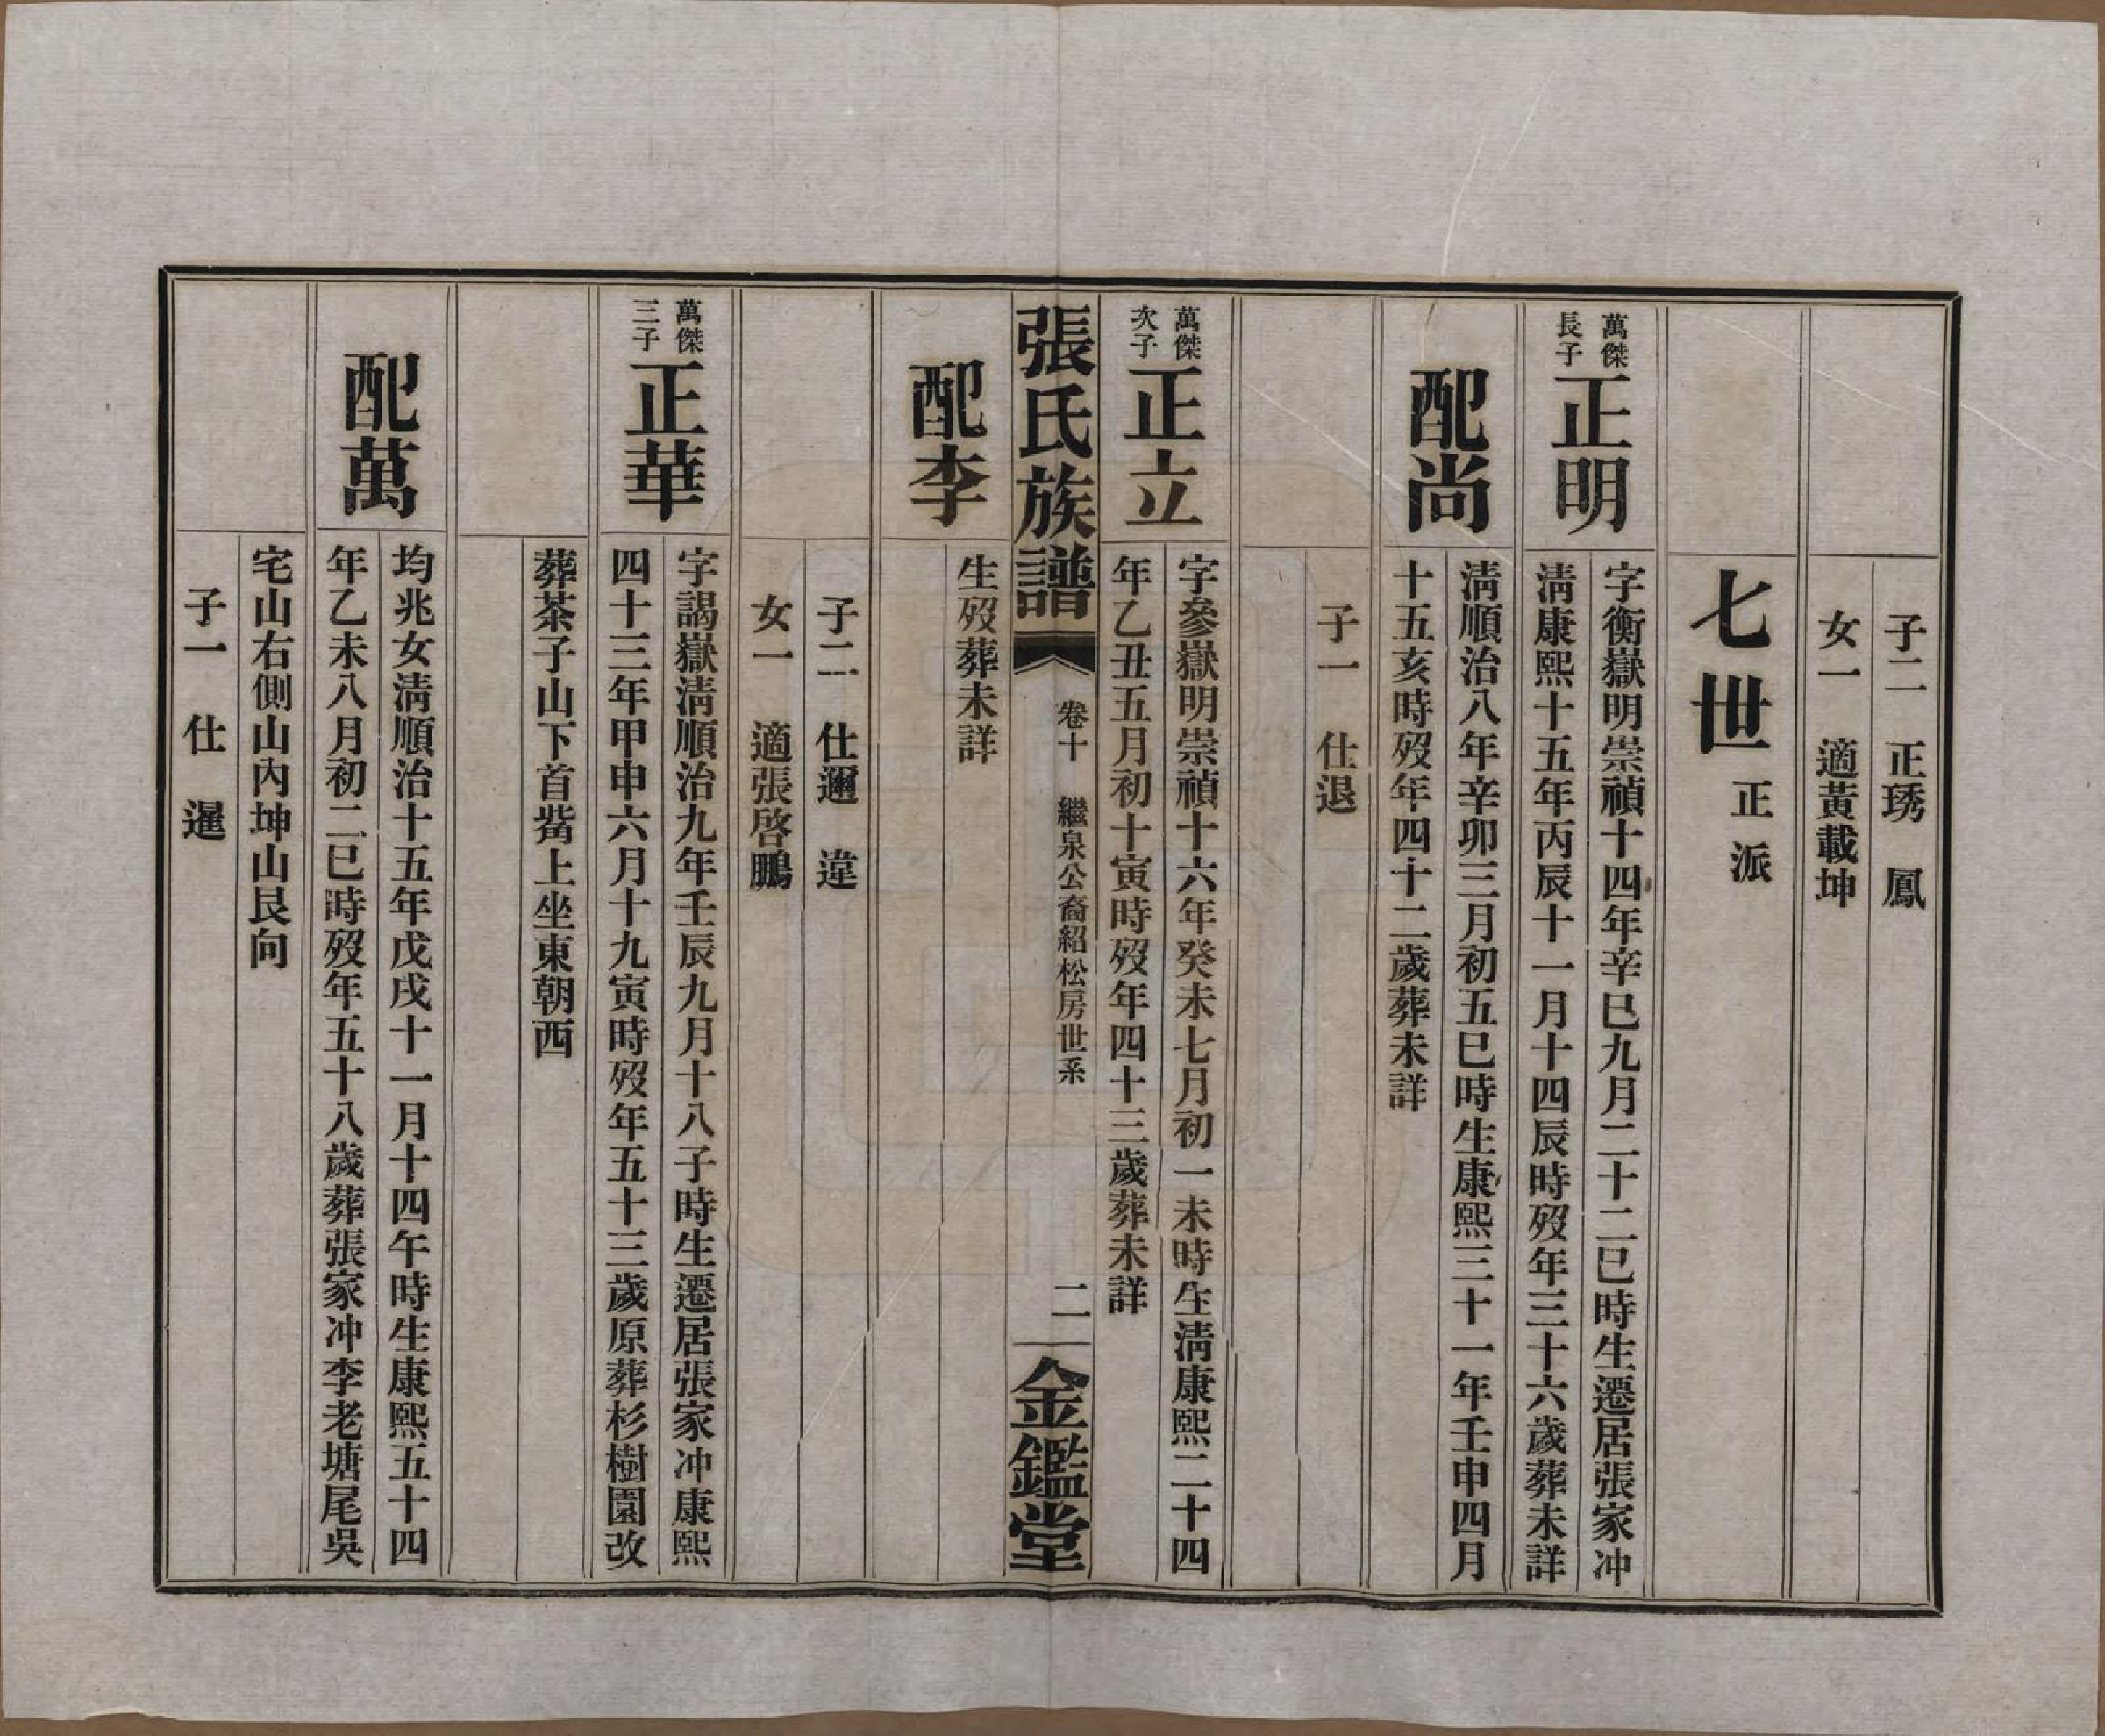 子二　正琇　鳳
女一　適黃載坤
七世正派
萬傑
長子
正明
字衡嶽明崇禎十四年辛巳九月二十二巳時生遷居張家冲
淸康熙十五年丙辰十一月十四辰時歿年三十六歲葬未詳
配尚
淸順治八年辛卯三月初五巳時生康熙三十一年壬申四月
十五亥時歿年四十二歲葬未詳
子一　仕退
萬傑
次子
正立
字參嶽明崇禎十六年癸未七月初一未時生淸康熙二十四
年乙丑五月初十寅時歿年四十三歲葬未詳
張氏族譜
卷十　繼泉公裔紹松房世系
二
金鑑堂
配李
生歿葬未詳
子二　仕邇　違
女一　適張啓鵬
萬傑
三子
正華
字謁嶽淸順治九年壬辰九月十八子時生遷居張家冲康熙
四十三年甲申六月十九寅時歿年五十三歲原葬杉樹園改
葬茶子山下首嘴上坐東朝西
配萬
均兆女淸順治十五年戊戌十一月十四午時生康熙五十四
年乙未八月初二巳時歿年五十八歲葬張家冲李老塘尾吳
宅山右側山內坤山艮向
子一　仕　暹